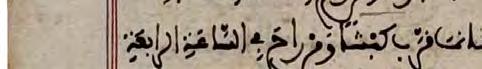 فكأنما قرب كبشا ومن راح في الساعة الرابعة